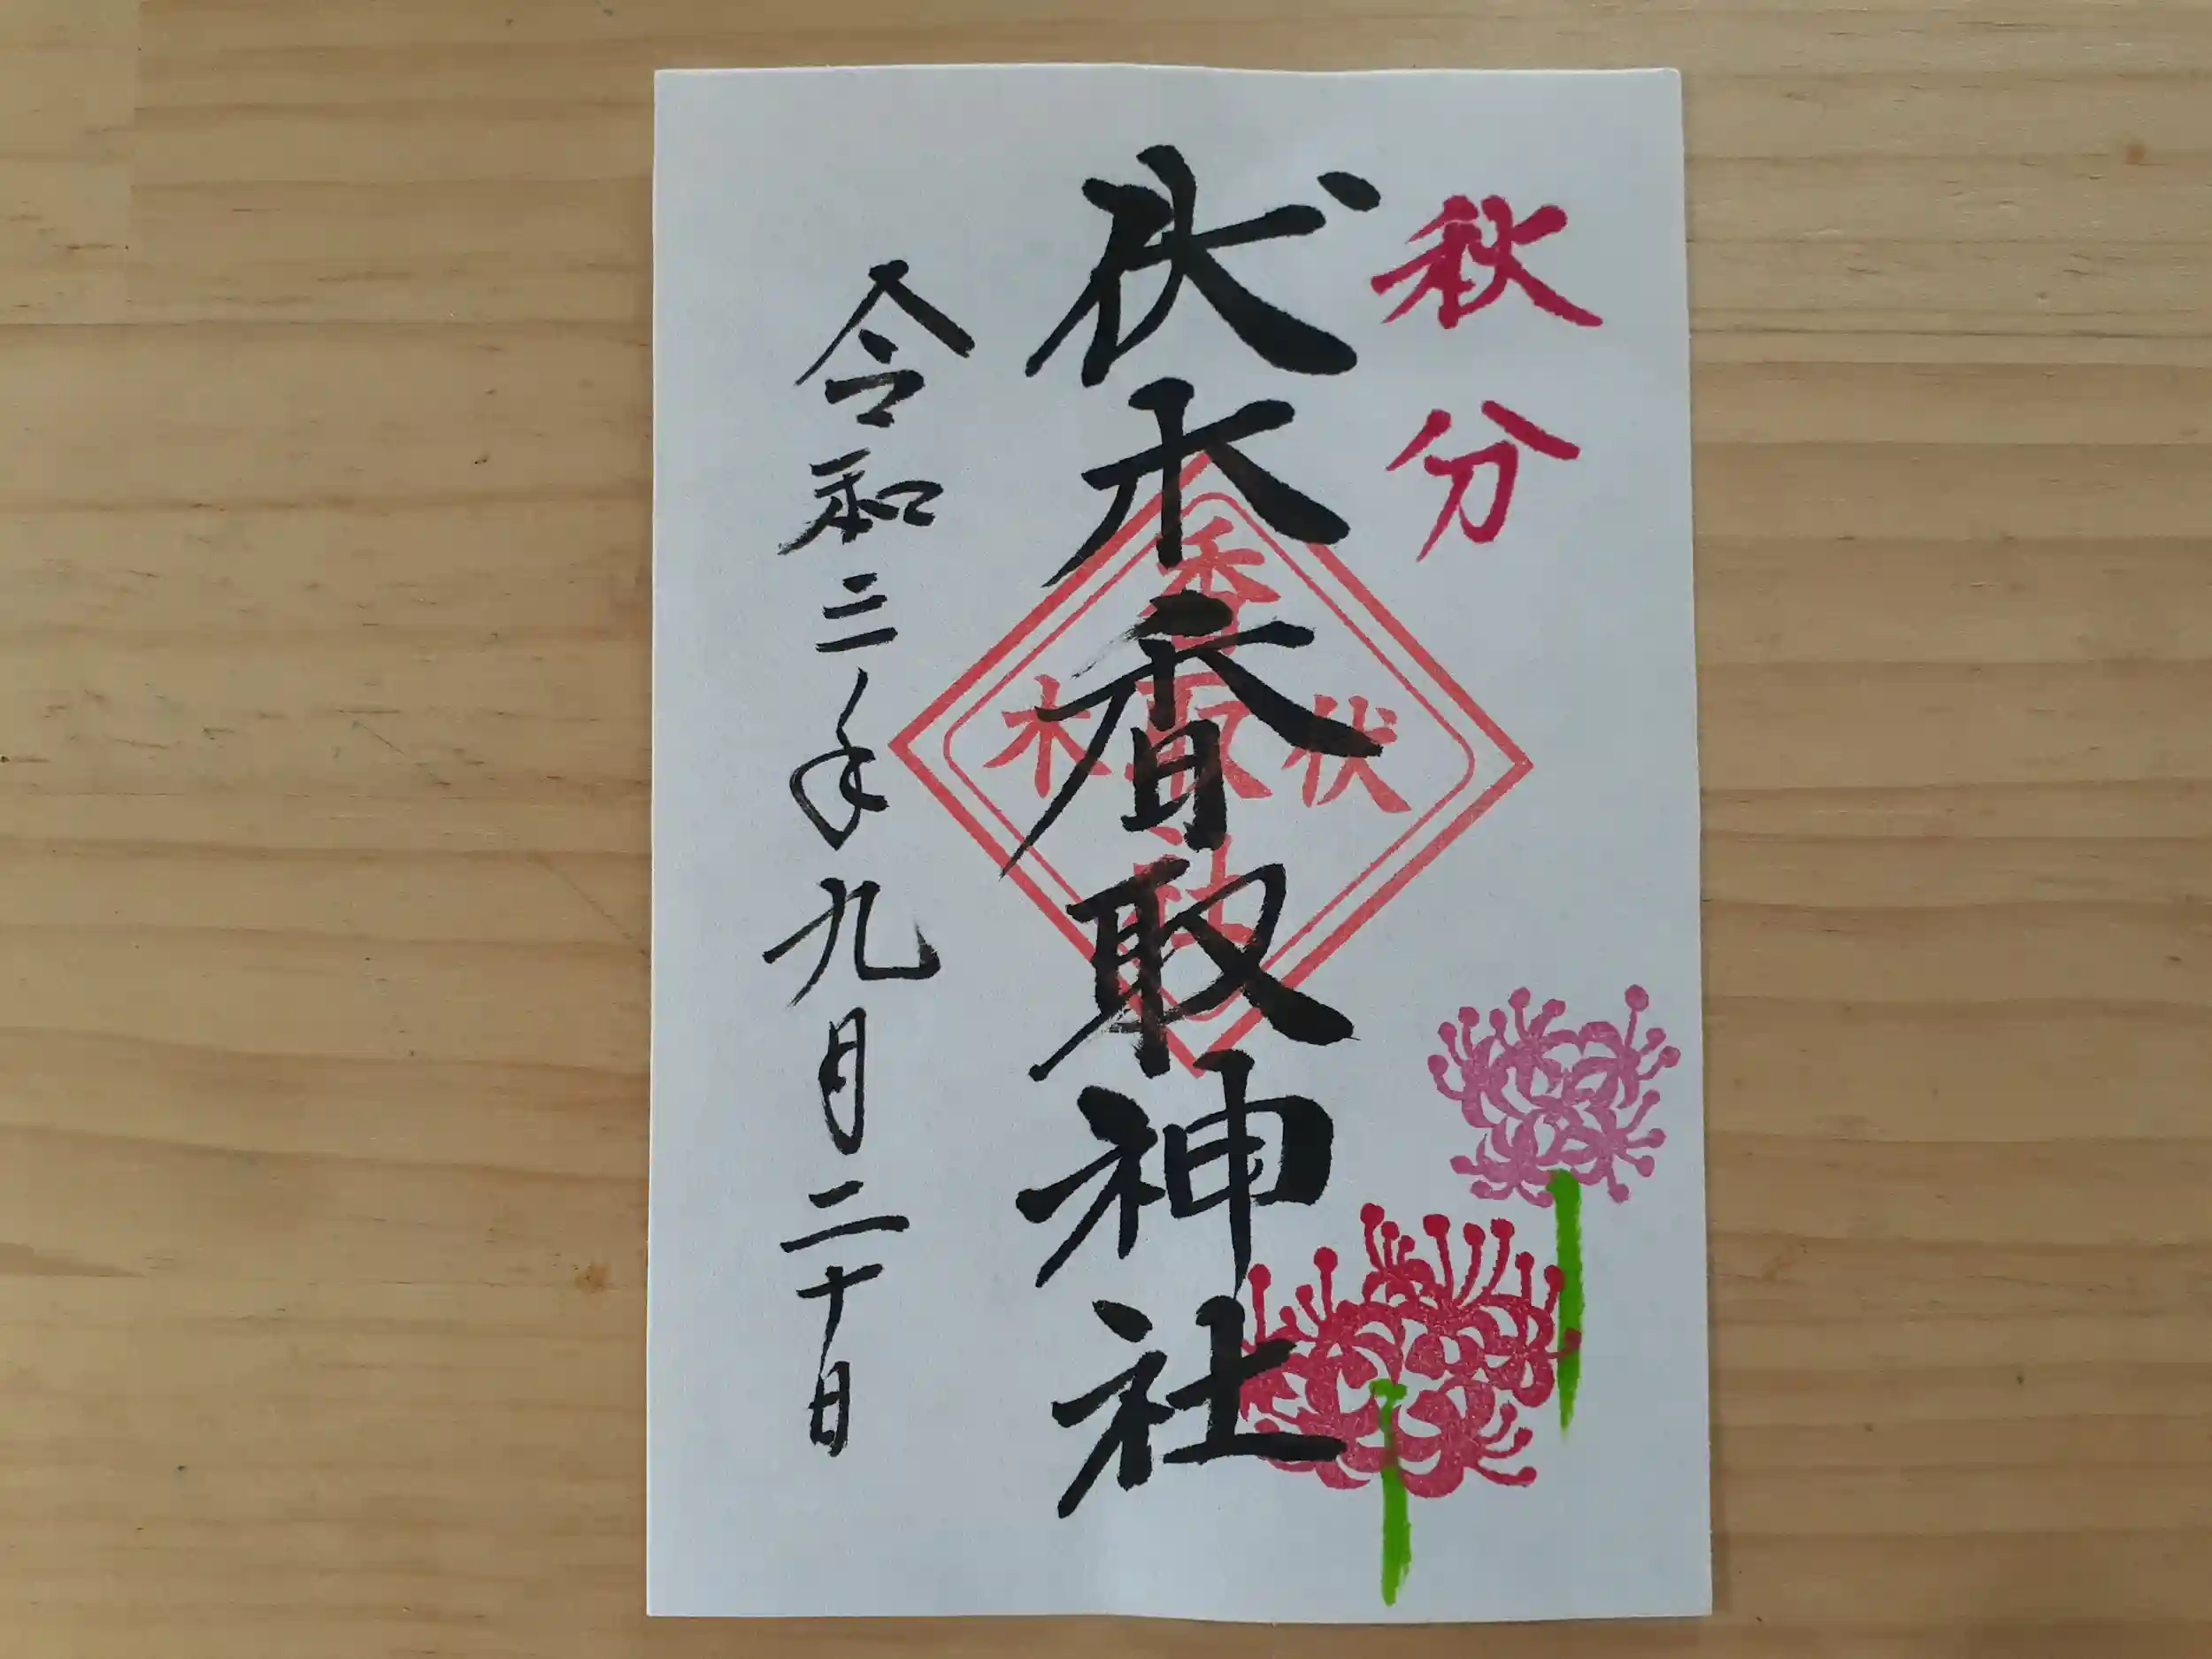 秋分
伏木香取神社
香取
伏木
社
令和三年九月二十日